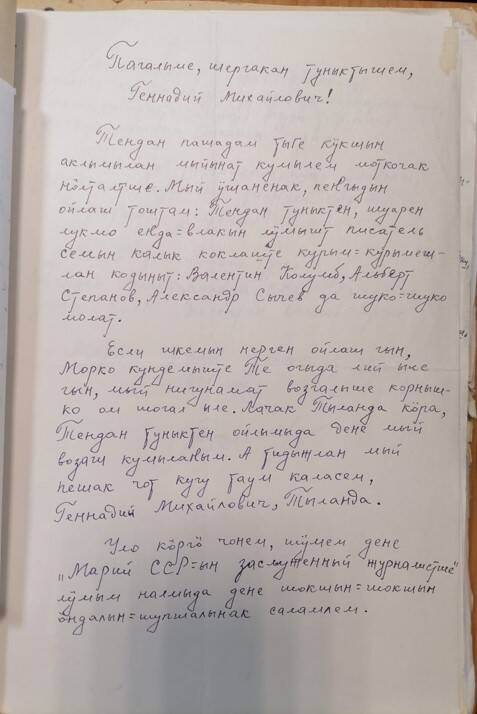 Пагалыме, шергакан туныктышем,
Геннадий Михайлович!
Тендан пашадам тыге кӱкшын
аклымылан мыйынат кумылем моткочак
нӧлталтше. Мый ӱшаненак, пеҥгыдын
ойлаш тоштам: Тендан туныктен, шуарен
лукмо еҥда=влакын лӱмышт писатель
семын калык коклаште курым=курымеш-
лан кодыныт: Валентин Колумб, Альберт
Степанов, Александр Сычев да шуко=шуко
молат.
Если шкемын нерген ойлаш гын,
Морко кундемыште Те огыда лий ыле
гын, мый нигунамат возгалыше корныш-
ко ом шогал ыле. Лачак Тыланда кӧра,
Тендан туныктен ойлымыда дене мый
возаш кумылаҥым. А тидыжлан мый
пешак чот кугу тау каласем,
Геннадий Михайлович, Тыланда.
Уло кӧргӧ чонем, шӱмем дене
„Марий ССР=ын заслуженный журналистше"
лӱмым налмыда дене шокшын=шокшын
ӧндалын=шупшалынак саламлем.